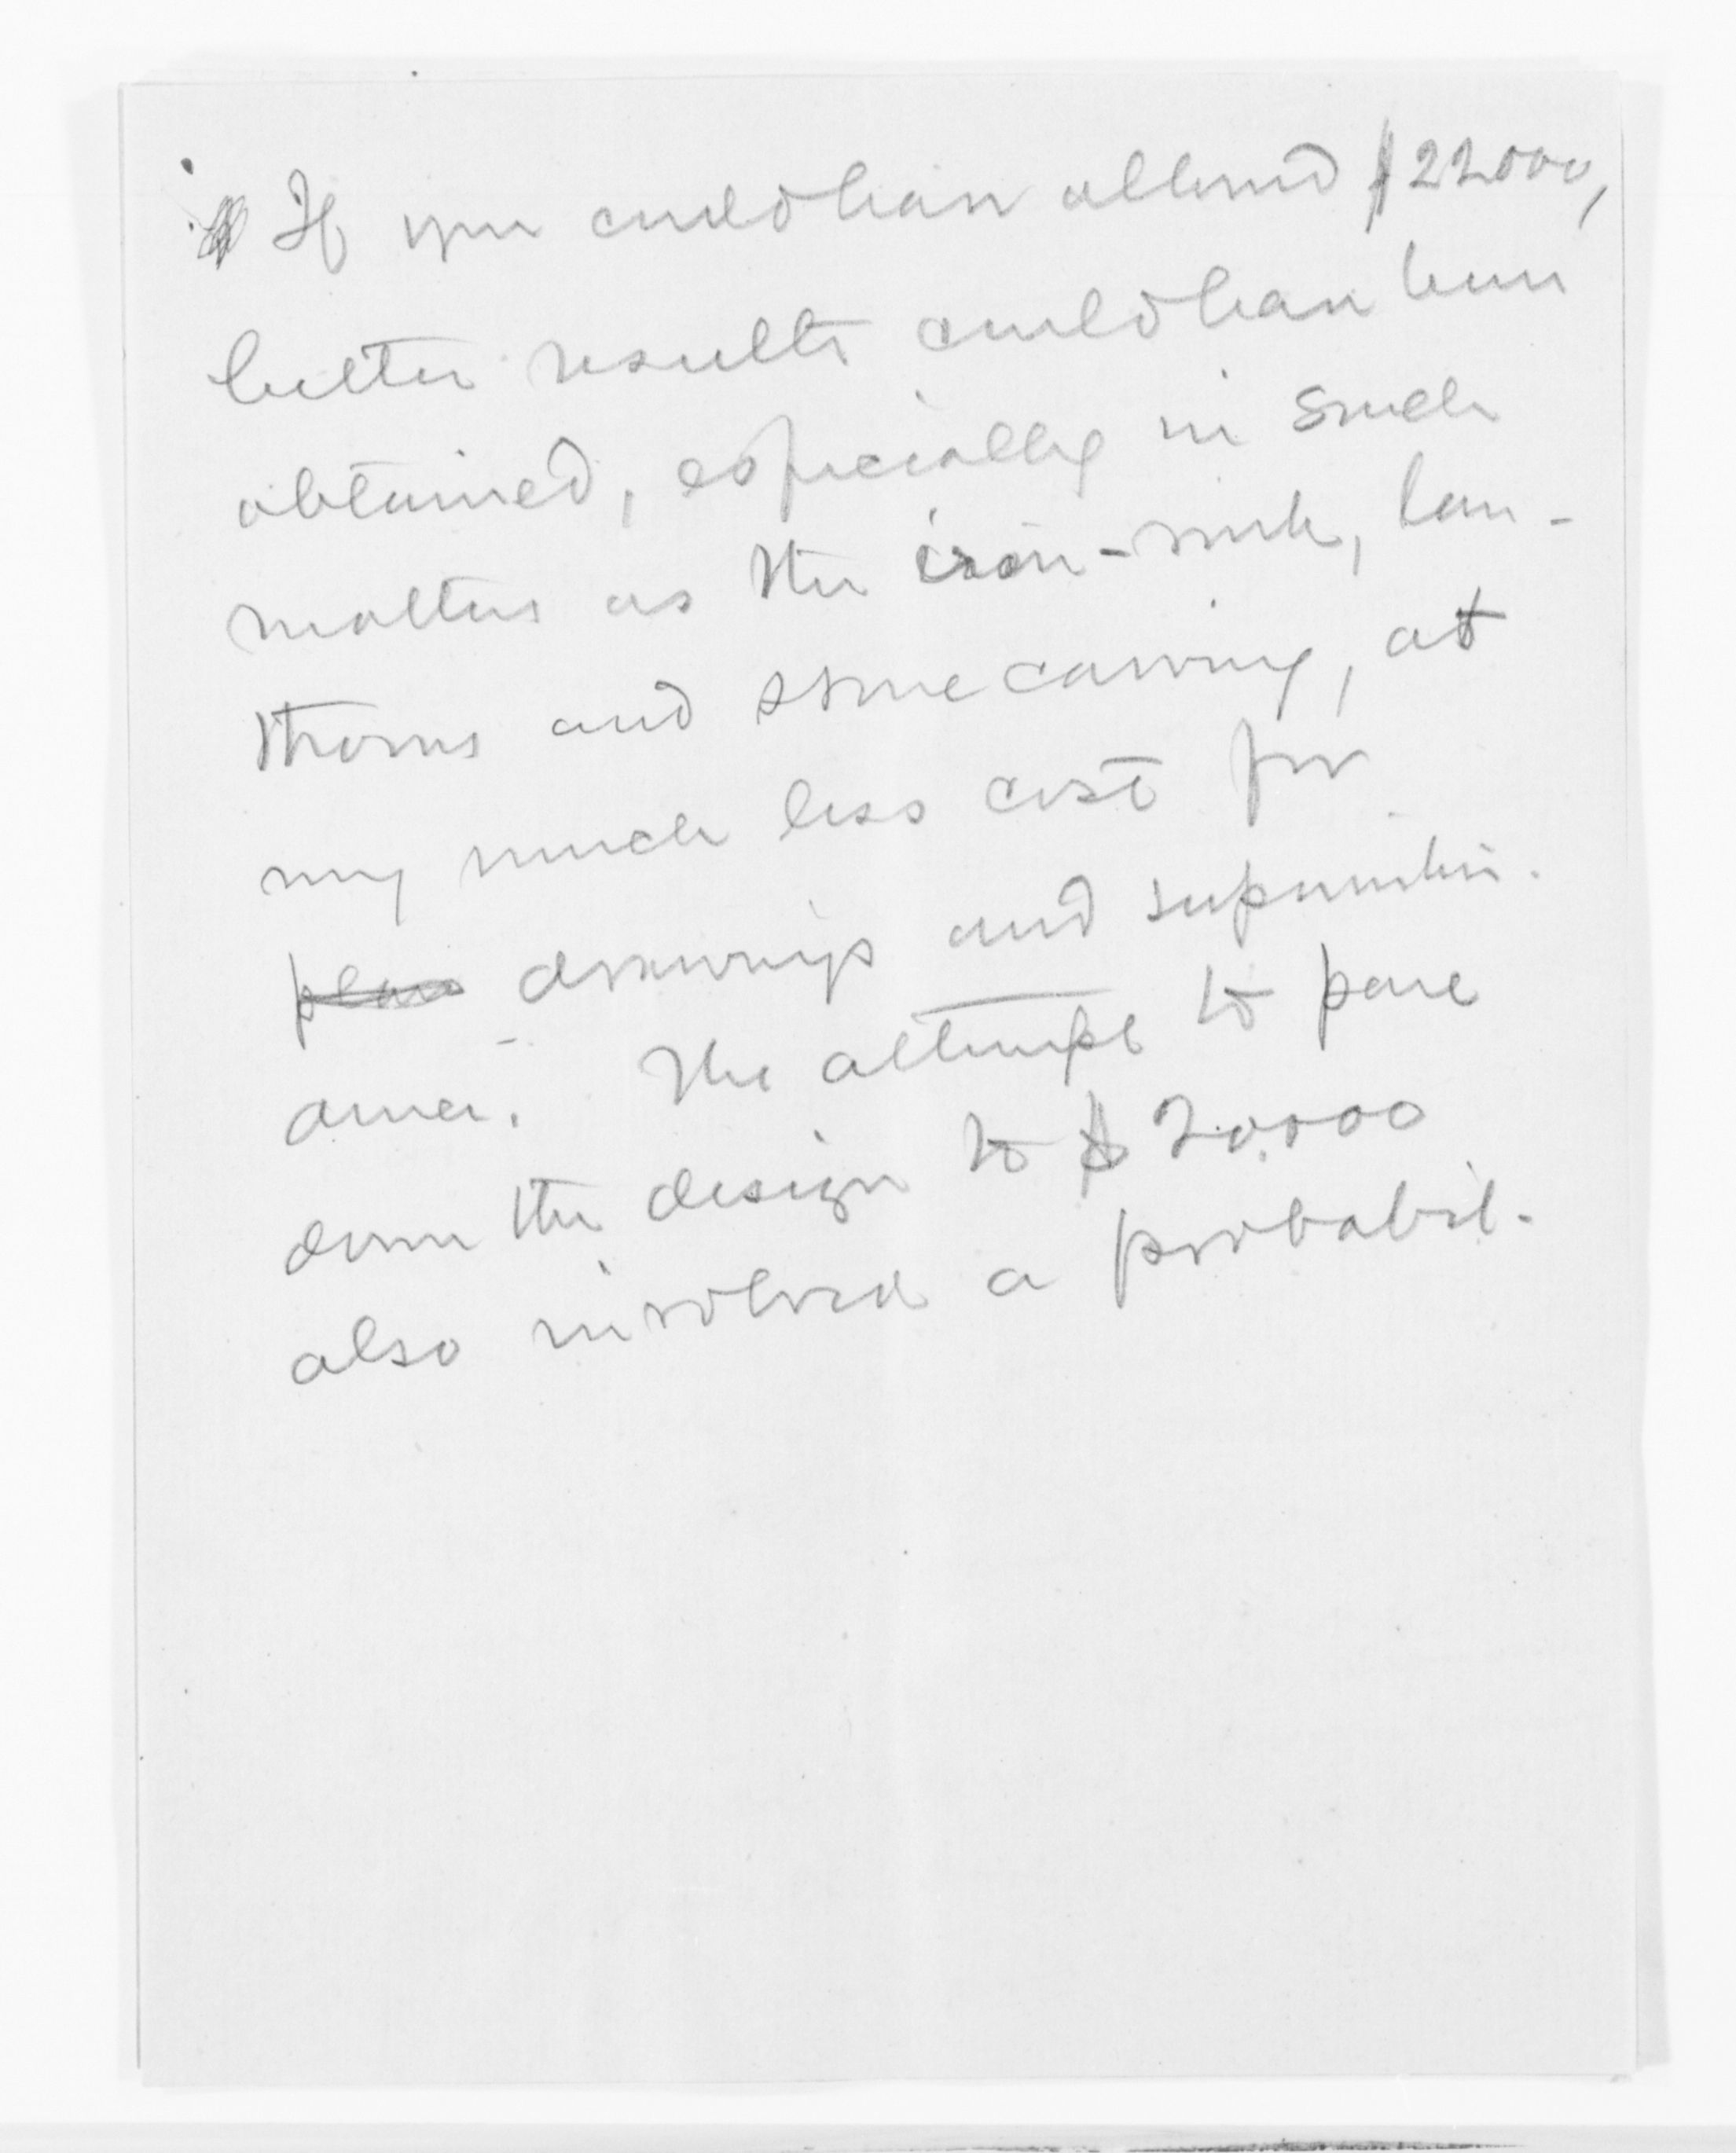 If you could have allowed $22000,
better results could have been
obtained, especially in such
matters as the iron-work, lan-
thorns and stone carving, at
very much less cost for
plans drawings and superinten-
dence. The attempt to pare
down the design to $20.000
also involved a probabil-